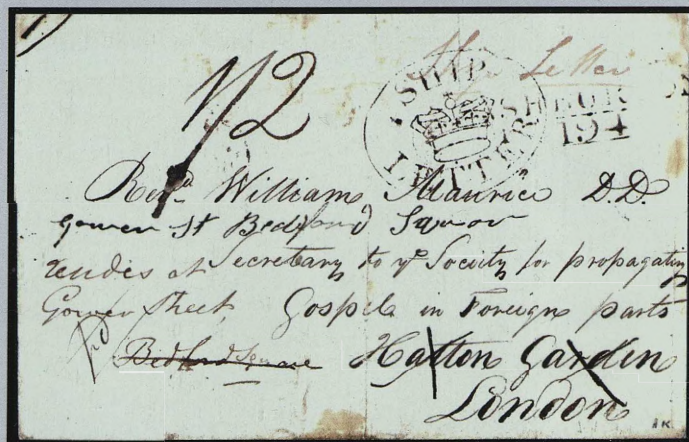 Ship Letter
1/2
SHIP LETTER
194
Revd. William Maurice D.D.
Gower St Bedford Squar
resides at Secretary to ye Society for propagating
Gower Street Gospels in Foreign parts
Bedford Square Hatton Garden
London